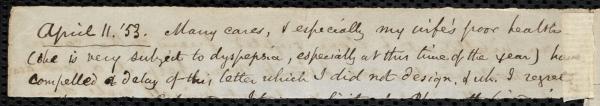 April 11. '53. Many cares, & especially my wife's poor health
(she is very subject to dyspepsia, especially at this time of the year) ha
compelled a delay of this letter which I did not design, & wh. I regret